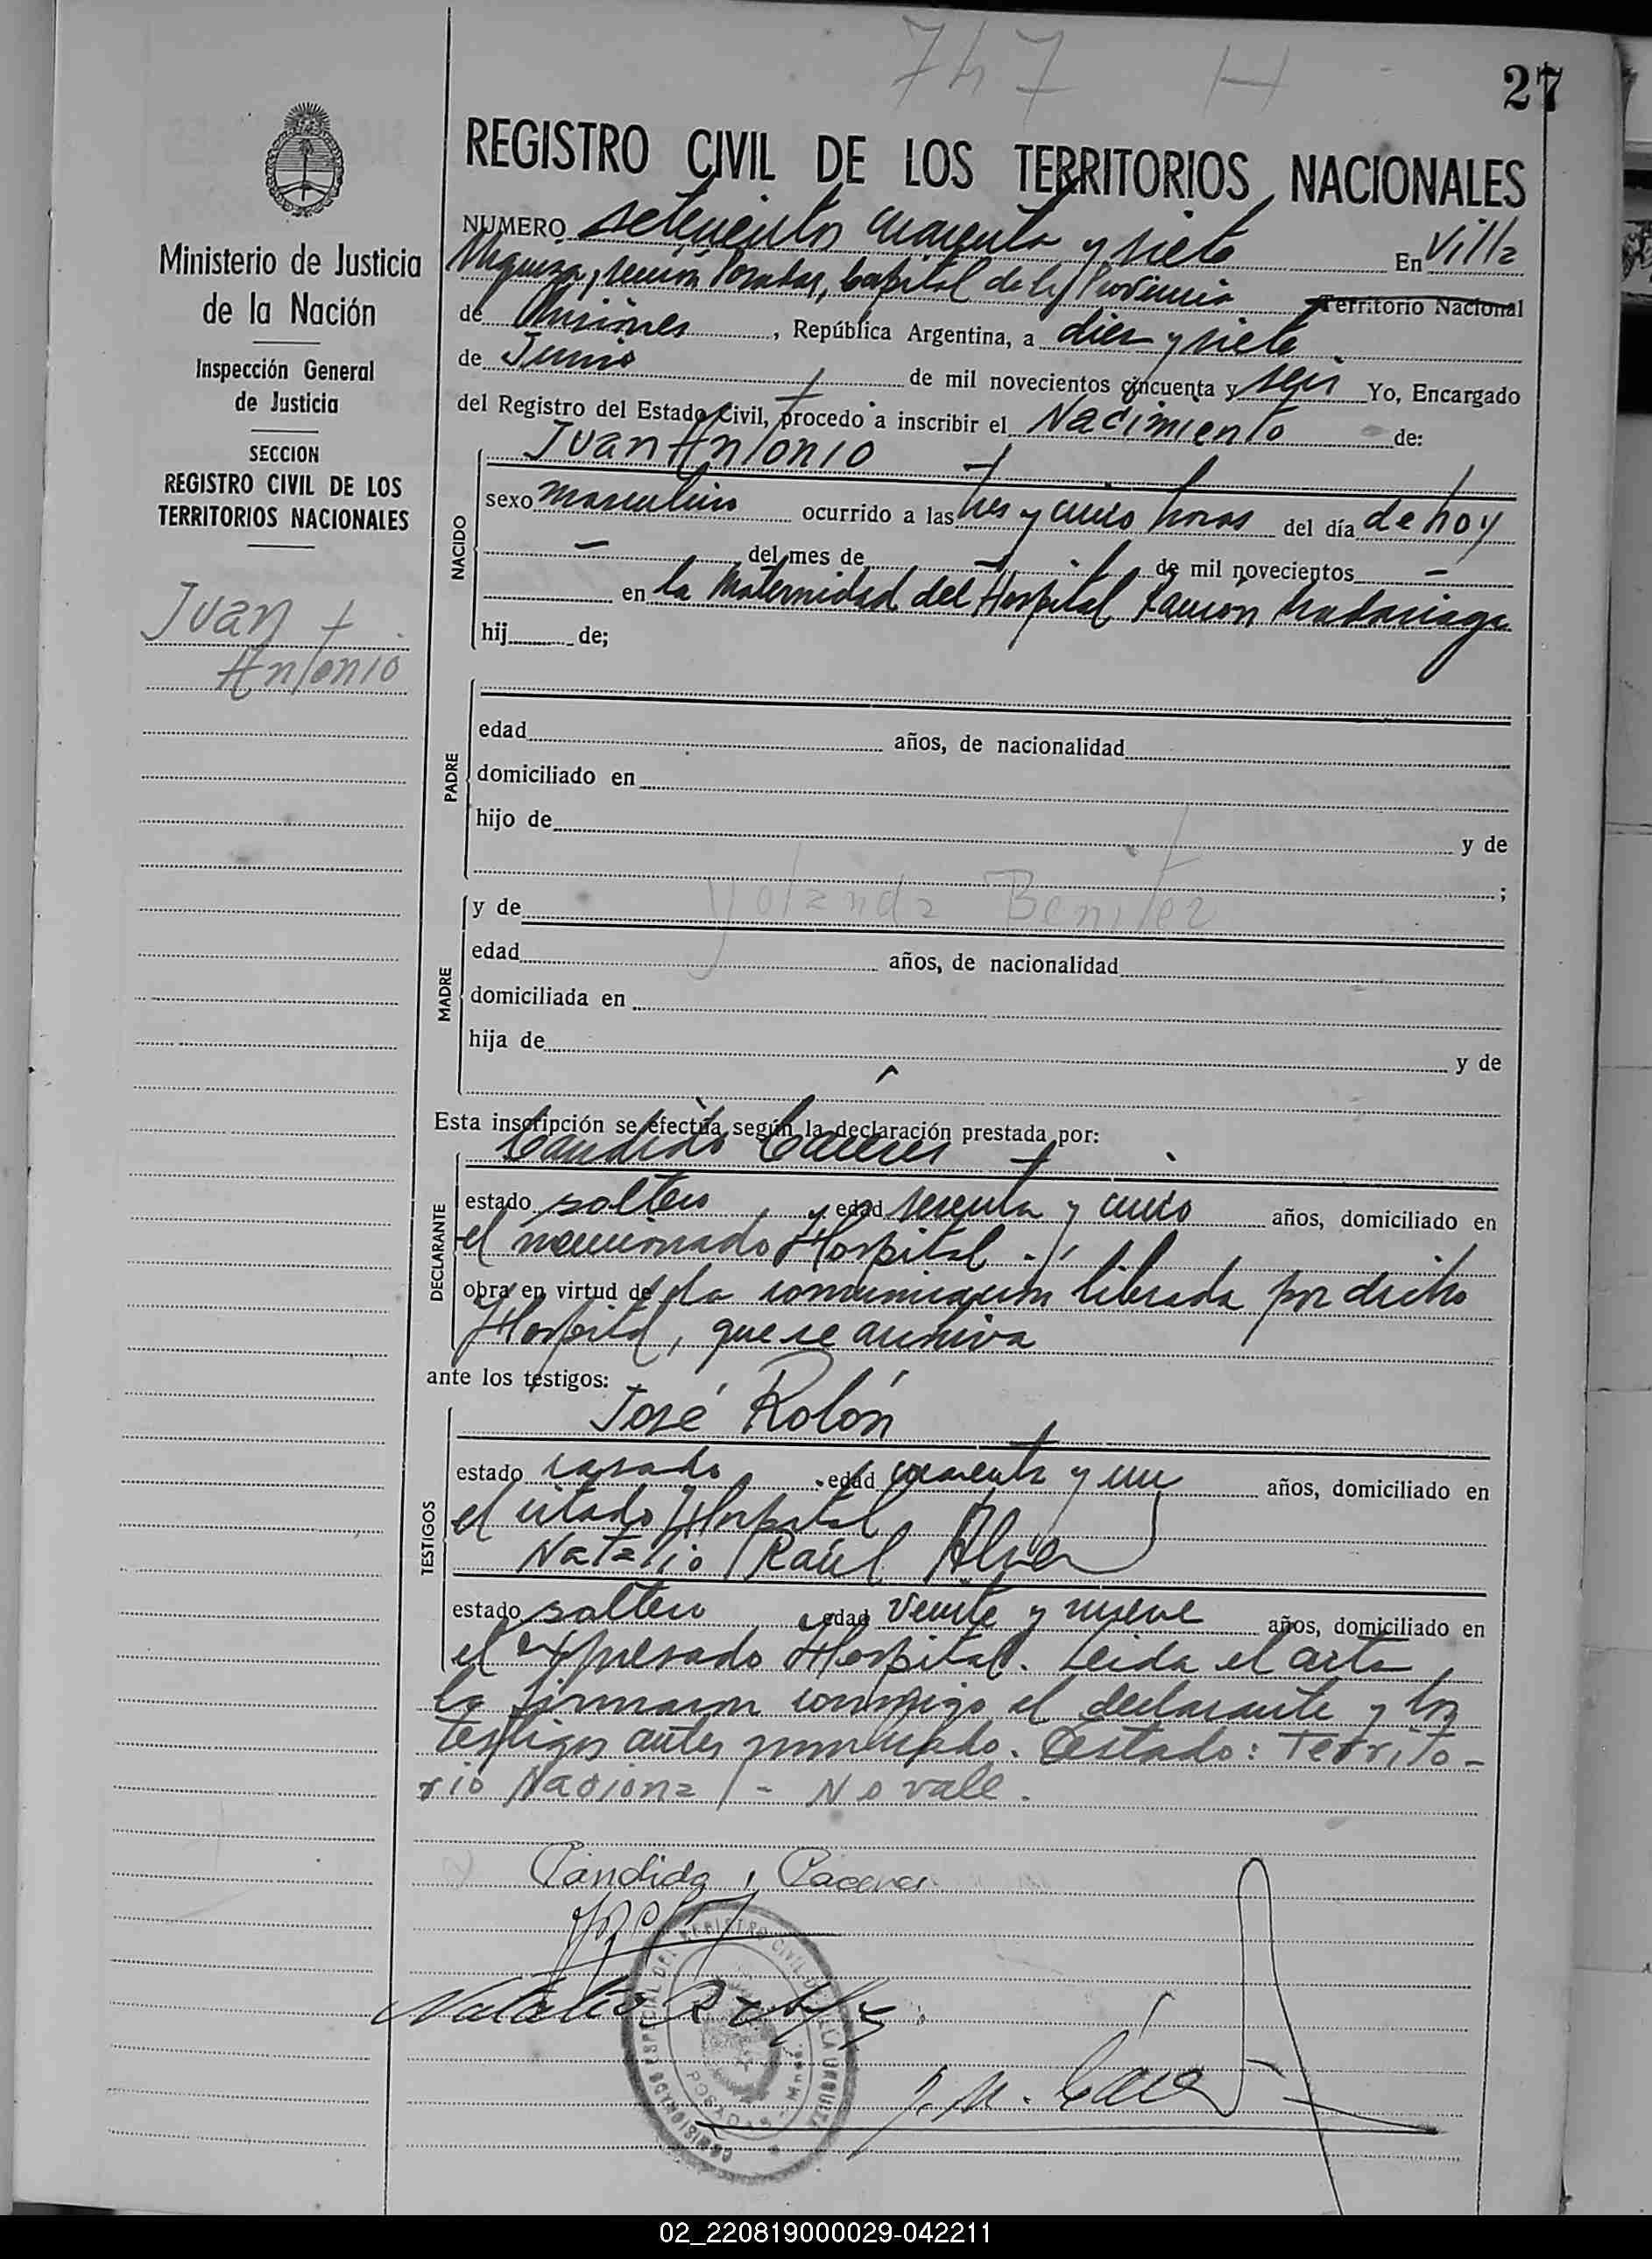 747 H
27
REGISTRO CIVIL DE LOS TERRITORIOS NACIONALES
Ministerio de Justicia
de la Nación
Inspección General
de Justicia
SECCION
REGISTRO CIVIL DE LOS
TERRITORIOS NACIONALES
Juan
Antonio
NUMERO setecientos cuarenta y siete En Villa
Urquiza, sección Posadas, Capital de la Provincia Territorio Nacional
de Misiones, República Argentina, a diez y siete
de Junio de mil novecientos cincuenta y seis Yo, Encargado
del Registro del Estado Civil, procedo a inscribir el Nacimiento de:
NACIDO
Juan Antonio
sexo masculino ocurrido a las tres y cinco horas del día de hoy
— del mes de — de mil novecientos —
en la Maternidad del Hospital Ramón Madariaga
hij de;
PADRE
edad años, de nacionalidad
domiciliado en
hijo de y de
;
MADRE
y de Yolanda Benitez
edad años, de nacionalidad
domiciliada en
hija de y de
Esta inscripción se efectúa según la declaración prestada por:
DECLARANTE
Candido Caceres
estado soltero edad sesenta y cinco años, domiciliado en
el mencionado Hospital.
obra en virtud de la comunicación librada por dicho
Hospital, que se archiva
ante los testigos:
TESTIGOS
José Rolón
estado casado edad cuarenta y un años, domiciliado en
el citado Hospital
Natalio Raúl
estado soltero edad veinte y nueve años, domiciliado en
el expresado Hospital. Leida el acta,
la firmaron conmigo el declarante y los
testigos antes nombrado. Testado: Territo-
rio Nacional - No vale.
Candido Caceres
Natalio R
COMISIONADO ESPECIAL DEL REGISTRO CIVIL DE VILLA URQUIZA
POSADAS - Mnes.